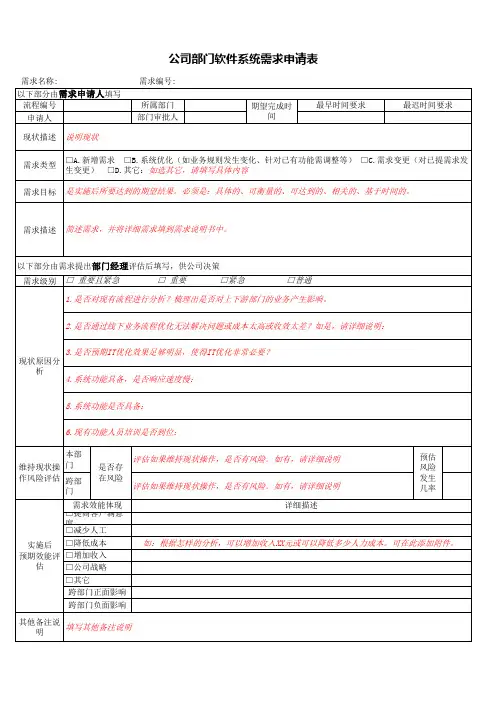 公司部门软件系统需求申请表
需求名称: 需求编号:
以下部分由需求申请人填写
流程编号 所属部门 期望完成时间 最早时间要求 最迟时间要求
申请人 部门审批人
现状描述 说明现状
需求类型 □A.新增需求 □B.系统优化（如业务规则发生变化、针对已有功能需调整等） □C.需求变更（对已提需求发
生变更） □D.其它：如选其它，请填写具体内容
需求目标 是实施后所要达到的期望结果。必须是：具体的、可衡量的、可达到的、相关的、基于时间的。
需求描述 简述需求，并将详细需求填到需求说明书中。
以下部分由需求提出部门经理评估后填写，供公司决策
需求级别 □ 重要且紧急 □ 重要 □紧急 □普通
现状原因分析
1.是否对现有流程进行分析？梳理出是否对上下游部门的业务产生影响。
2.是否通过线下业务流程优化无法解决问题或成本太高或收效太差？如是，请详细说明：
3.是否预期IT优化效果足够明显，使得IT优化非常必要？
4.系统功能具备，是否响应速度慢：
5.系统功能是否具备：
6.现有功能人员培训是否到位：
维持现状操作风险评估
本部门 是否存在风险 评估如果维持现状操作，是否有风险。如有，请详细说明 预估风险发生几率
跨部门 评估如果维持现状操作，是否有风险。如有，请详细说明
实施后
预期效能评估
需求效能体现 详细描述
□提高客户满意度
□减少人工
□降低成本 如：根据怎样的分析，可以增加收入XX元或可以降低多少人力成本。可在此添加附件。
□增加收入
□公司战略
□其它
跨部门正面影响
跨部门负面影响
其他备注说明 填写其他备注说明